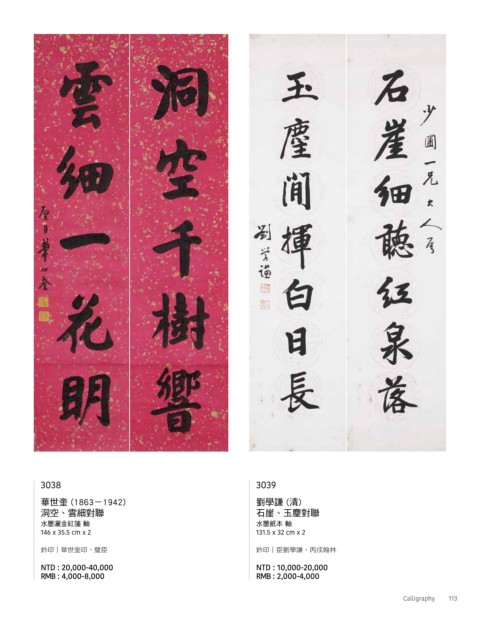 洞空千樹響
雲細一花明
華世奎
少圃一兄大人屬
石崖細聽紅泉落
玉麈閒揮白日長
劉學謙
3038
華世奎 (1863－1942)
洞空、雲細對聯
水墨灑金紅箋 軸
146 x 35.5 cm x 2
鈐印｜華世奎印、璧臣
NTD : 20,000-40,000
RMB : 4,000-8,000
3039
劉學謙 (清)
石崖、玉麈對聯
水墨紙本 軸
131.5 x 32 cm x 2
鈐印｜臣劉學謙、丙戌翰林
NTD : 10,000-20,000
RMB : 2,000-4,000
Calligraphy 113